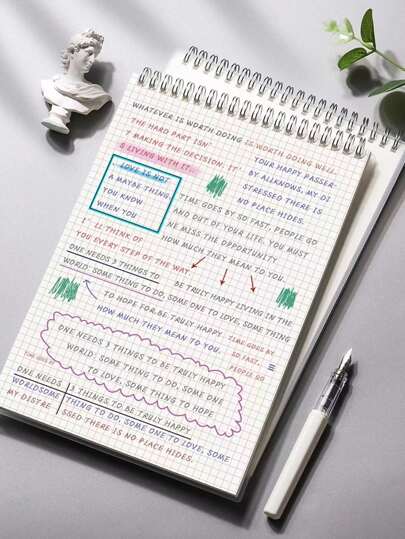 WHATEVER IS WORTH DOING IS WORTH DOING WELL.
THE HARD PART ISN'
T MAKING THE DECISION. IT'
S LIVING WITH IT.
YOUR HAPPY PASSER-
BY ALLKNOWS, MY DI
STRESSED THERE IS
NO PLACE HIDES.
LOVE IS NOT
A MAYBE THING
YOU KNOW
WHEN YOU
TIME GOES BY SO FAST, PEOPLE GO
AND OUT OF YOUR LIFE. YOU MUST
NE MISS THE OPPORTUNITY
HOW MUCH THEY MEAN TO YOU.
I'LL THINK OF
YOU EVERY STEP OF THE WAY.
ONE NEEDS 3 THINGS TO BE TRULY HAPPY LIVING IN THE
WORLD: SOME THING TO DO, SOME ONE TO LOVE, SOME THING
TO HOPE FOR BE TRULY HAPPY.
HOW MUCH THEY MEAN TO YOU.
TIME GOES BY
SO FAST,
PEOPLE GO
ONE NEEDS 3 THINGS TO BE TRULY HAPPY
WORLD: SOME THING TO DO, SOME ONE
TO LOVE, SOME THING TO HOPE
TIME GOES BY
ONE NEEDS 13 THINGS TO BE TRULY HAPPY
WORLDSOME THING TO DO, SOME ONE TO LOVE, SOME
MY DISTRE SSED THERE IS NO PLACE HIDES.